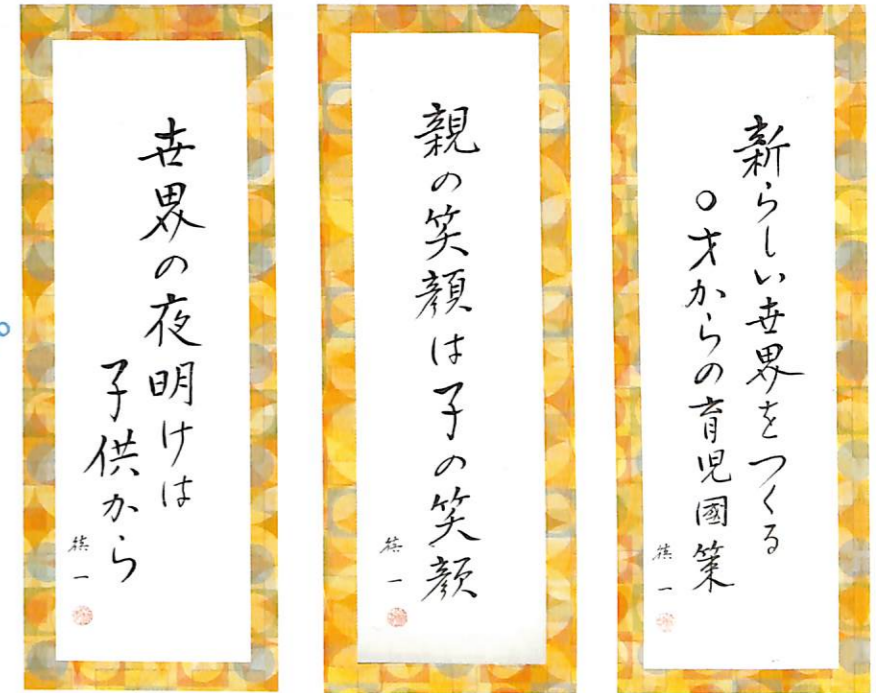 新らしい世界をつくる
〇才からの育児國策
一
親の笑顔は子の笑顔
一
世界の夜明けは
子供から
一